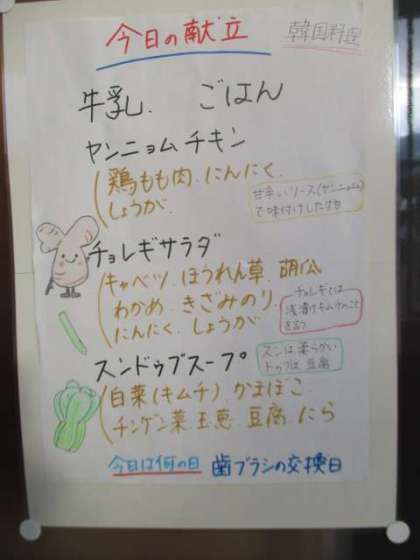 今日の献立
韓国料理
牛乳、 ごはん
ヤンニョムチキン
鶏もも肉、にんにく、
しょうが、
甘辛いソース(ヤンニョム)
で味付けした
チョレギサラダ
キャベツ、ほうれん草、胡瓜
わかめ、きざみのり、
にんにく、しょうが
チョレギとは
浅漬けキムチのこと
を言う
スンドゥブスープ
スンは柔らかい
トゥブは豆腐
白菜(キムチ)、かまぼこ、
チンゲン菜、玉葱、豆腐、にら
今日は何の日 歯ブラシの交換日